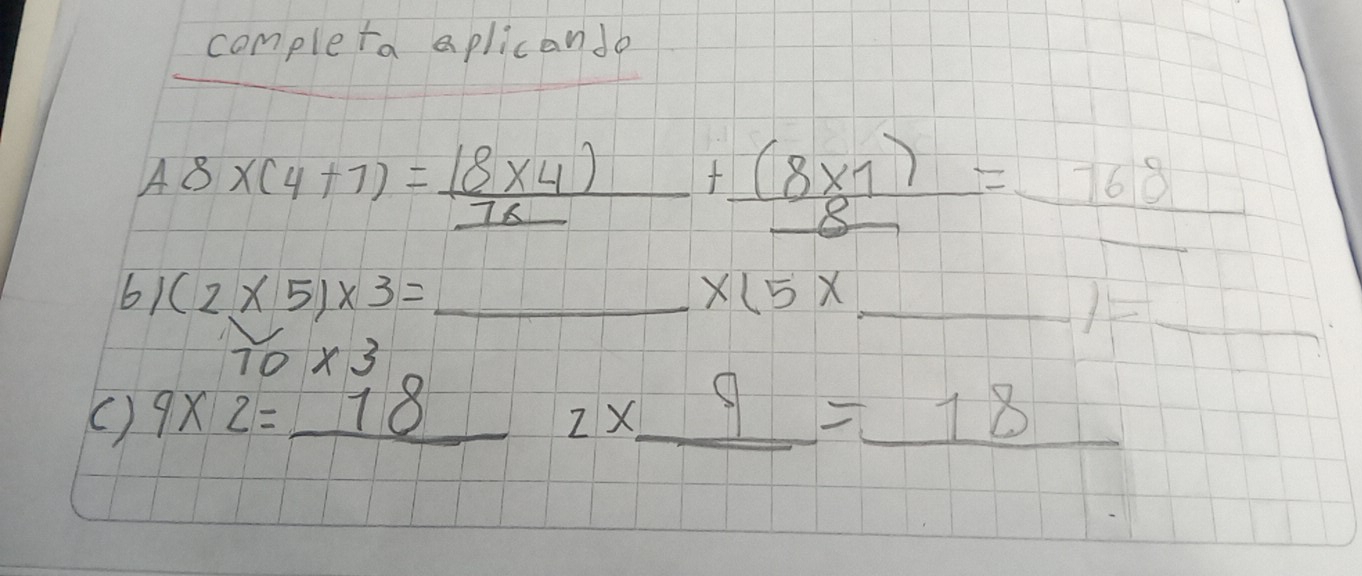 completa aplicando
A 8 x (4 + 1) = (8 x 4) + (8 x 1) = 168
16 8
b) (2 x 5) x 3 = ________ x (5 x ________ ) = ________
10 x 3
c) 9 x 2 = 18 2 x 9 = 18